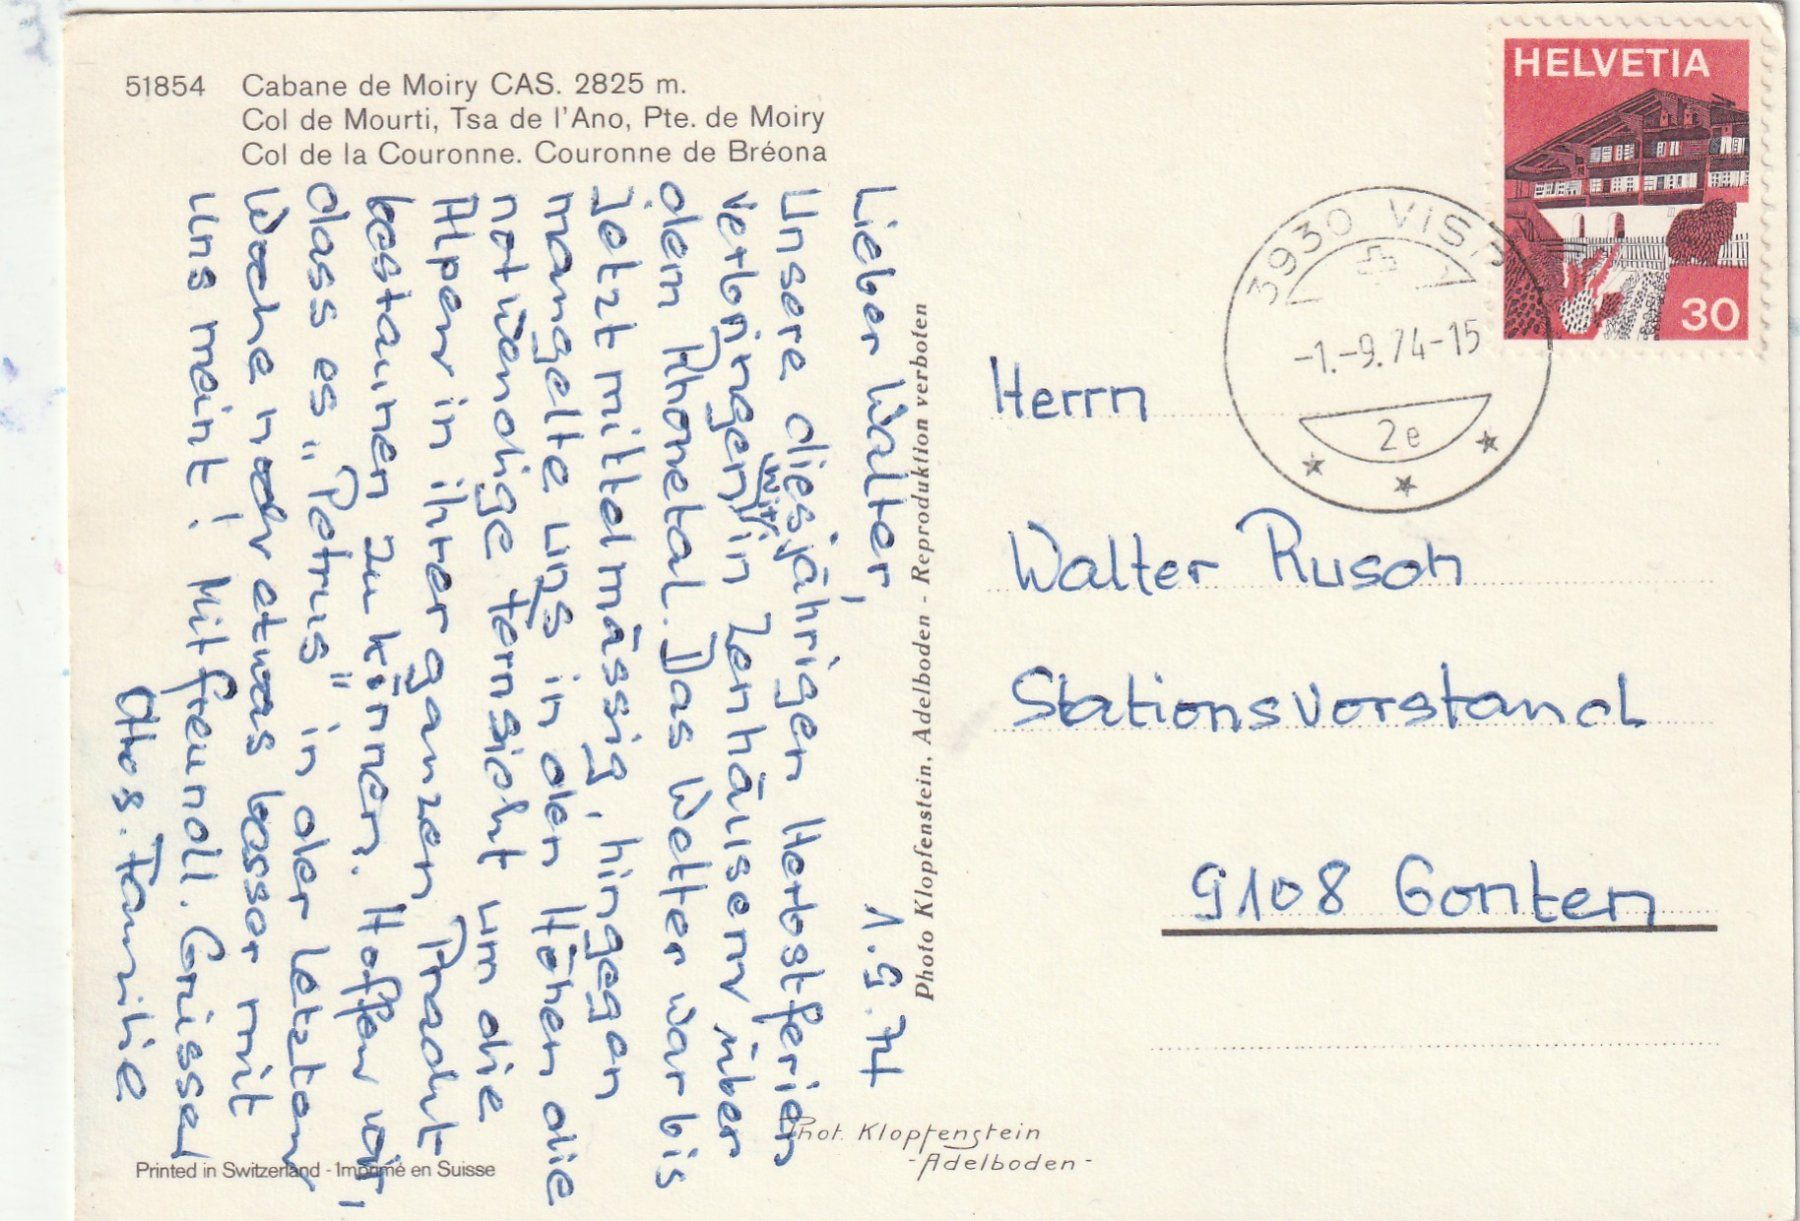 51854 Cabane de Moiry CAS. 2825 m.
Col de Mourti, Tsa de l'Ano, Pte. de Moiry
Col de la Couronne. Couronne de Bréona
HELVETIA
30
3930 VISP
-1.-9.74-15
2e
Lieber Walter, 1.9.74
Unsere diesjährigen Herbstferien
verbringen wir in Zenhäusern über
dem Rhonetal. Das Wetter war bis
Jetzt mittelmässig, hingegen
mangelte uns in den Höhen die
notwendige Fernsicht um die
Alpen in ihrer ganzen Pracht
bestaunen zu können. Hoffen wir,
dass es "Petrus" in der letzten
Woche noch etwas besser mit
uns meint! Mit freundl. Grüssen
Familie
Photo Klopfenstein, Adelboden - Reproduktion verboten
Herrn
Walter Rusch
Stationsvorstand
9108 Gonten
Phot. Klopfenstein
-Adelboden-
Printed in Switzerland - Imprimé en Suisse